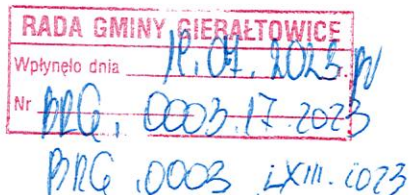 RADA GMINY GIERAŁTOWICE
Wpłynęło dnia
Nr BRG. 0003.17.2023
BRG.0003 LXIII.2023